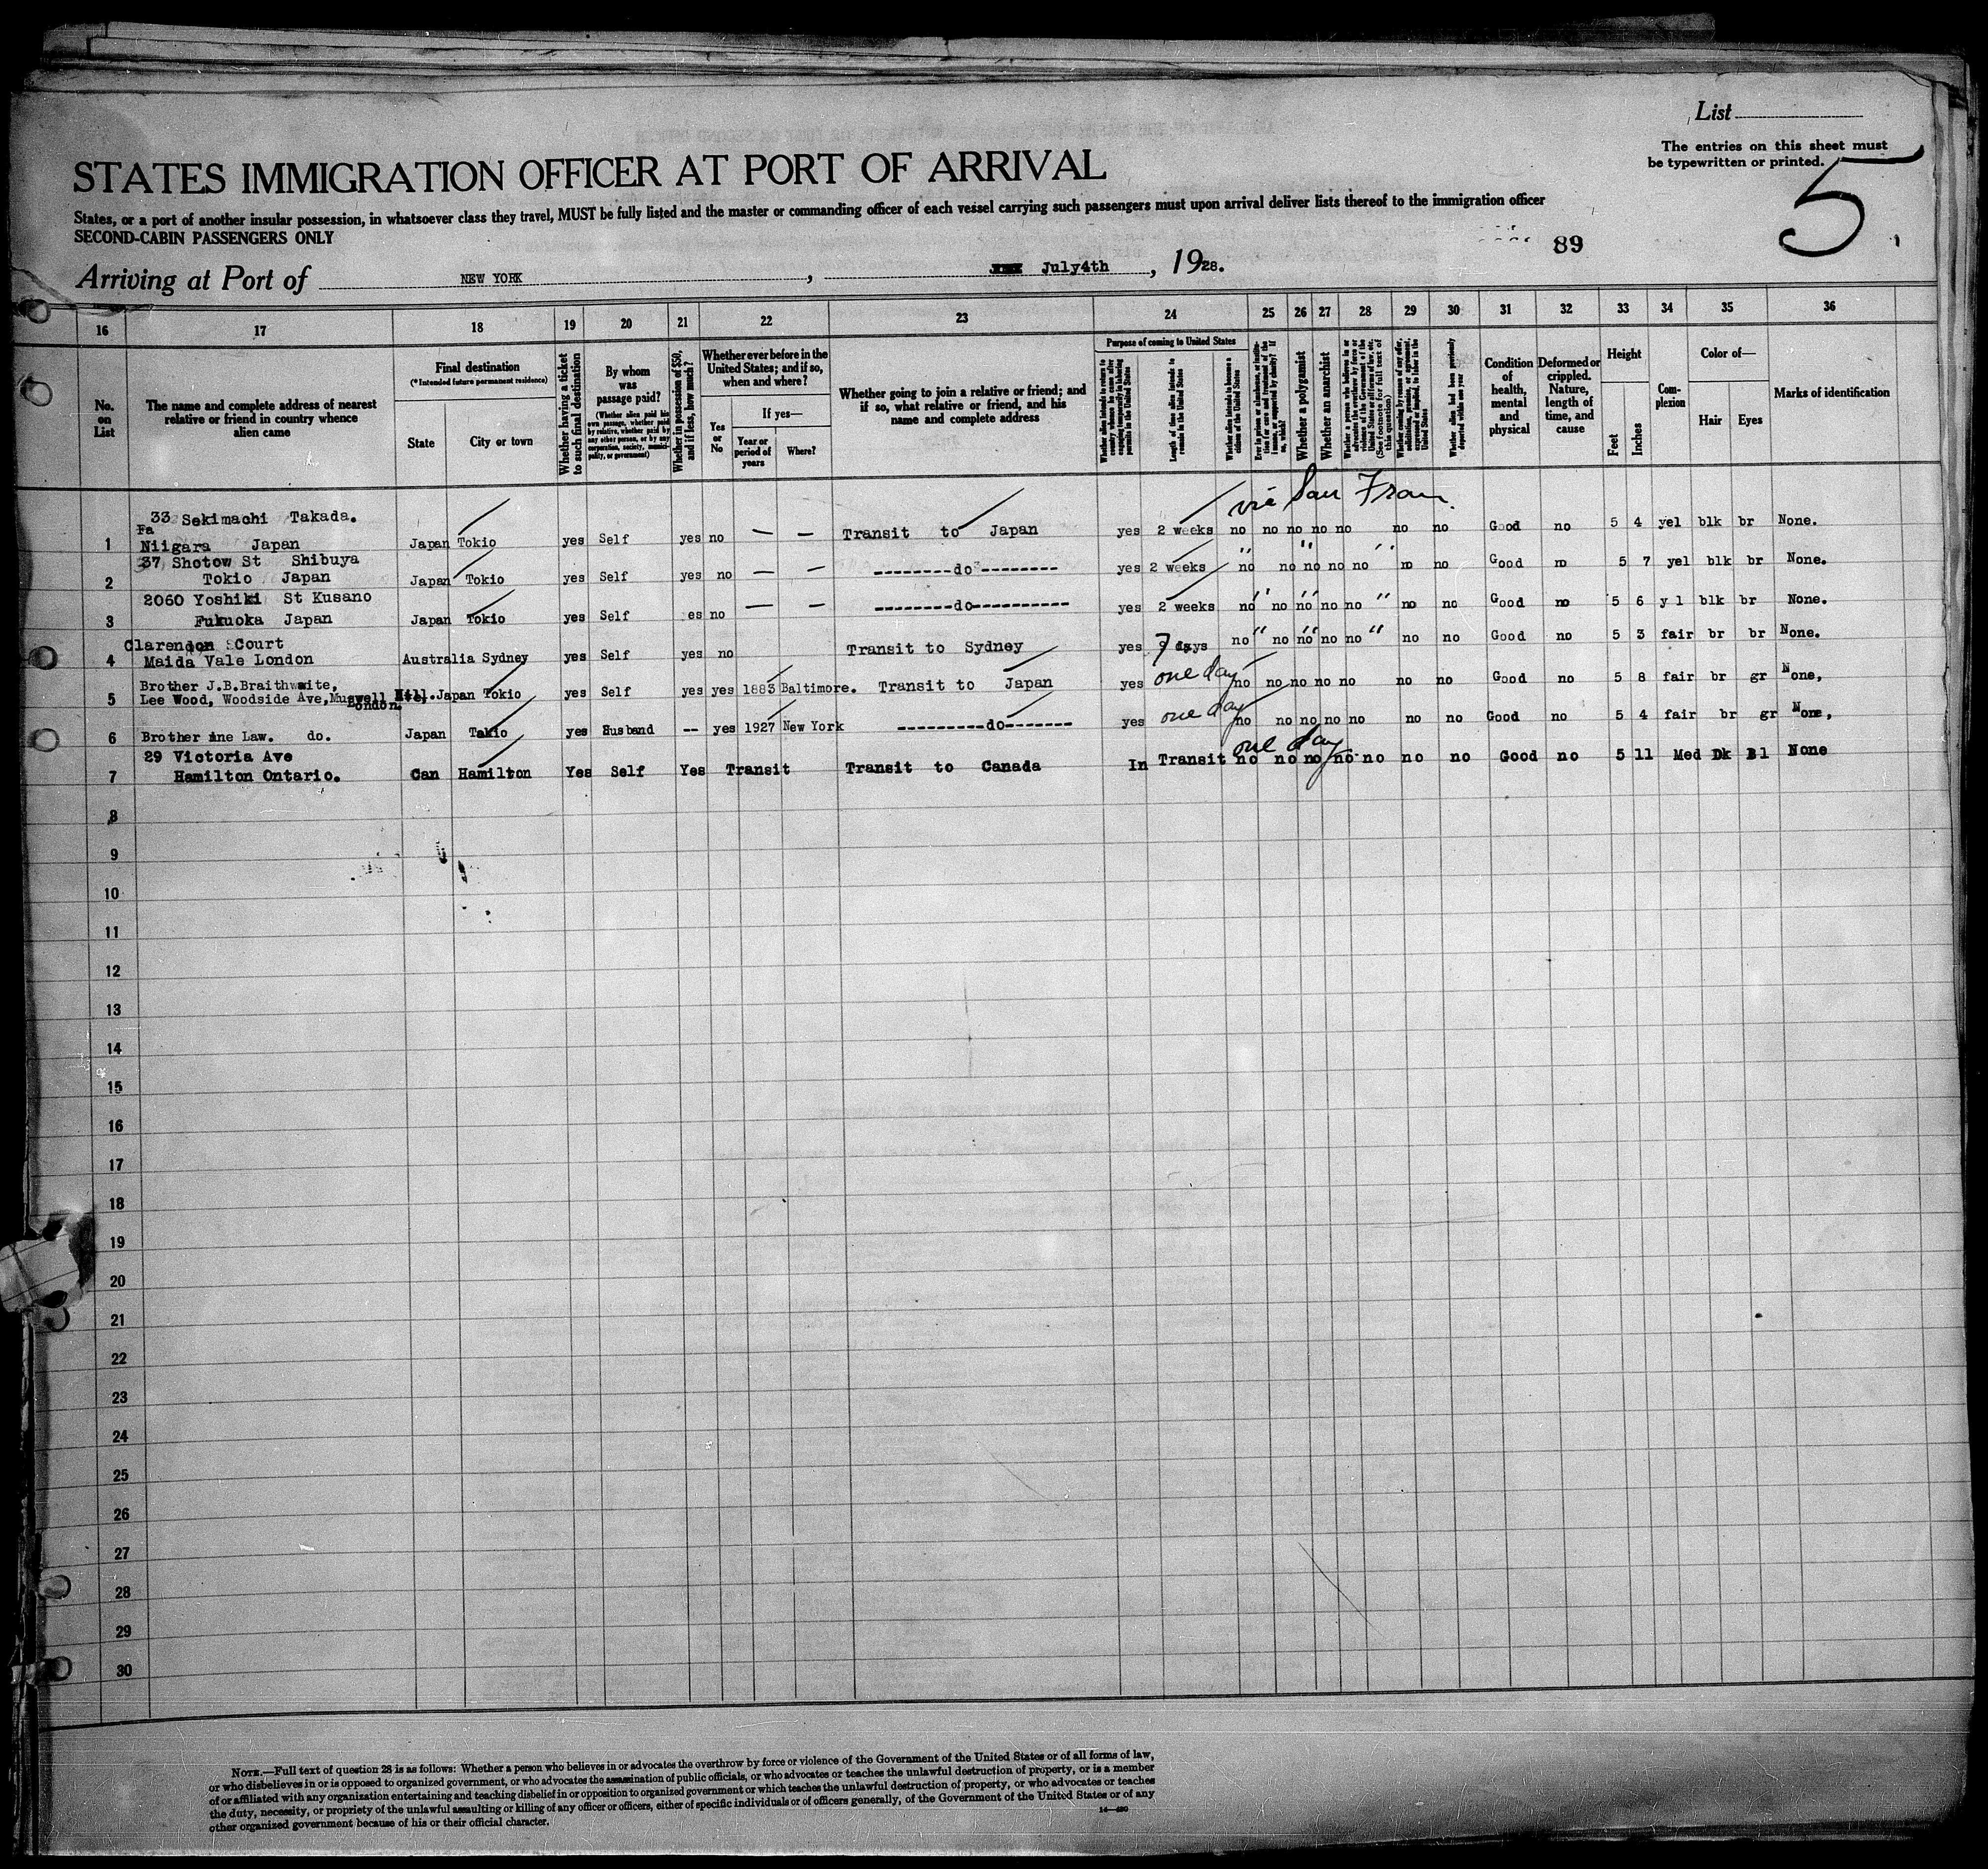 List
The entries on this sheet must
be typewritten or printed.
5
STATES IMMIGRATION OFFICER AT PORT OF ARRIVAL
States, or a port of another insular possession, in whatsoever class they travel, MUST be fully listed and the master or commanding officer of each vessel carrying such passengers must upon arrival deliver lists thereof to the immigration officer
SECOND-CABIN PASSENGERS ONLY
89
Arriving at Port of NEW YORK, July4th, 1928.
16 17 18 19 20 21 22 23 24 25 26 27 28 29 30 31 32 33 34 35 36
No. on List
The name and complete address of nearest relative or friend in country whence alien came
Final destination
(*Intended future permanent residence)
State
City or town
Whether having a ticket to such final destination
By whom was passage paid?
(Whether alien paid his own passage, whether paid by relative, whether paid by any other person, or by any corporation, society, municipality, or government)
Whether in possession of $50, and if less, how much?
Whether ever before in the United States; and if so, when and where?
Yes or No
If yes—
Year or period of years
Where?
Whether going to join a relative or friend; and if so, what relative or friend, and his name and complete address
Purpose of coming to United States
Whether alien intends to return to country whence he came after engaging temporarily in laboring pursuits in the United States
Length of time alien intends to remain in the United States
Whether alien intends to become a citizen of the United States
Whether a polygamist
Whether an anarchist
(See footnote for full text of this question)
Whether alien had been previously deported within one year
Condition of health, mental and physical
Deformed or crippled. Nature, length of time, and cause
Height
Feet
Inches
Complexion
Color of—
Hair
Eyes
Marks of identification
via San Fran
33 Sekimachi Takada.
Fa
1 Niigara Japan Japan Tokio yes Self yes no — — Transit to Japan yes 2 weeks no no no no no no no Good no 5 4 yel blk br None.
37 Shotow St Shibuya " " "
2 Tokio Japan Japan Tokio yes Self yes no — — ---------do--------- yes 2 weeks no no no no no no no Good no 5 7 yel blk br None.
2060 Yoshiki St Kusano " " "
3 Fukuoka Japan Japan Tokio yes Self es no — — ---------do----------- yes 2 weeks no no no no no no no Good no 5 6 y l blk br None.
Clarendon Court " " "
4 Maida Vale London Australia Sydney yes Self yes no Transit to Sydney yes 7 days no no no no no no no Good no 5 3 fair br br None.
Brother J.B.Braithwaite,
5 Lee Wood, Woodside Ave, Muswell Hill. London. Japan Tokio yes Self yes yes 1883 Baltimore. Transit to Japan yes one day no no no no no no no Good no 5 8 fair br gr None,
6 Brother ine Law. do. Japan Takio yes Husband -- yes 1927 New York ----------do------- yes one day no no no no no no no Good no 5 4 fair br gr None,
29 Victoria Ave one day
7 Hamilton Ontario. Can Hamilton Yes Self Yes Transit Transit to Canada In Transit no no no no no no no Good no 5 11 Med Dk Bl None
8
9
10
11
12
13
14
15
16
17
18
19
20
21
22
23
24
25
26
27
28
29
30
NOTE.—Full text of question 28 is as follows: Whether a person who believes in or advocates the overthrow by force or violence of the Government of the United States or of all forms of law,
or who disbelieves in or is opposed to organized government, or who advocates the assassination of public officials, or who advocates or teaches the unlawful destruction of property, or is a member
of or affiliated with any organization entertaining and teaching disbelief in or opposition to organized government or which teaches the unlawful destruction of property, or who advocates or teaches
the duty, necessity, or propriety of the unlawful assaulting or killing of any officer or officers, either of specific individuals or of officers generally, of the Government of the United States or of any
other organized government because of his or their official character.
14—480